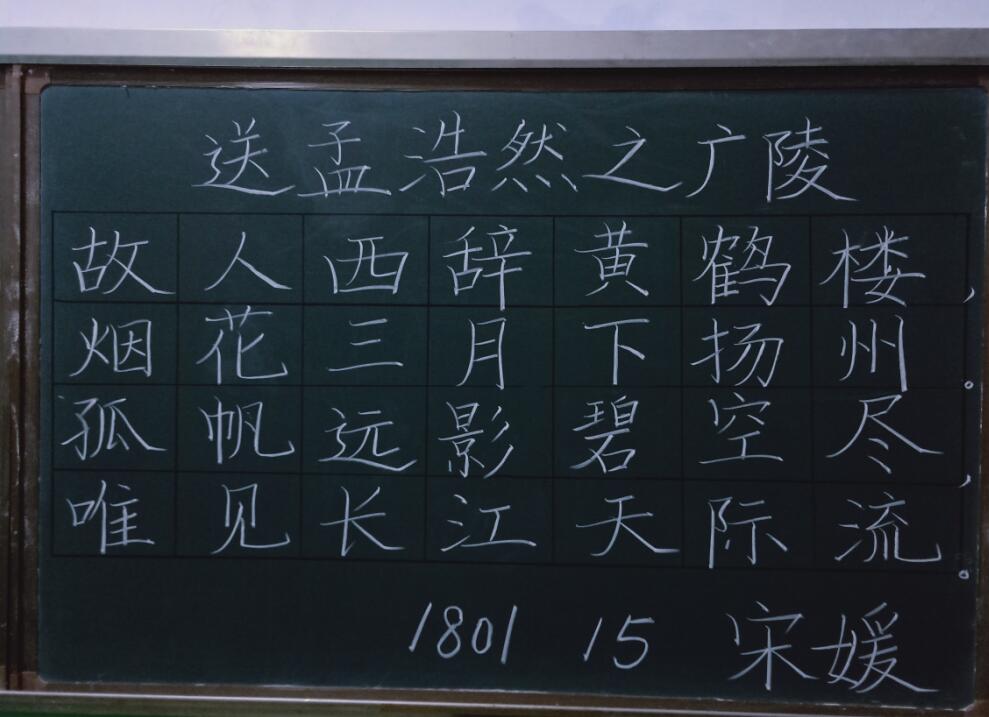 送孟浩然之广陵
故人西辞黄鹤楼，
烟花三月下扬州。
孤帆远影碧空尽，
唯见长江天际流。
1801 15 宋媛